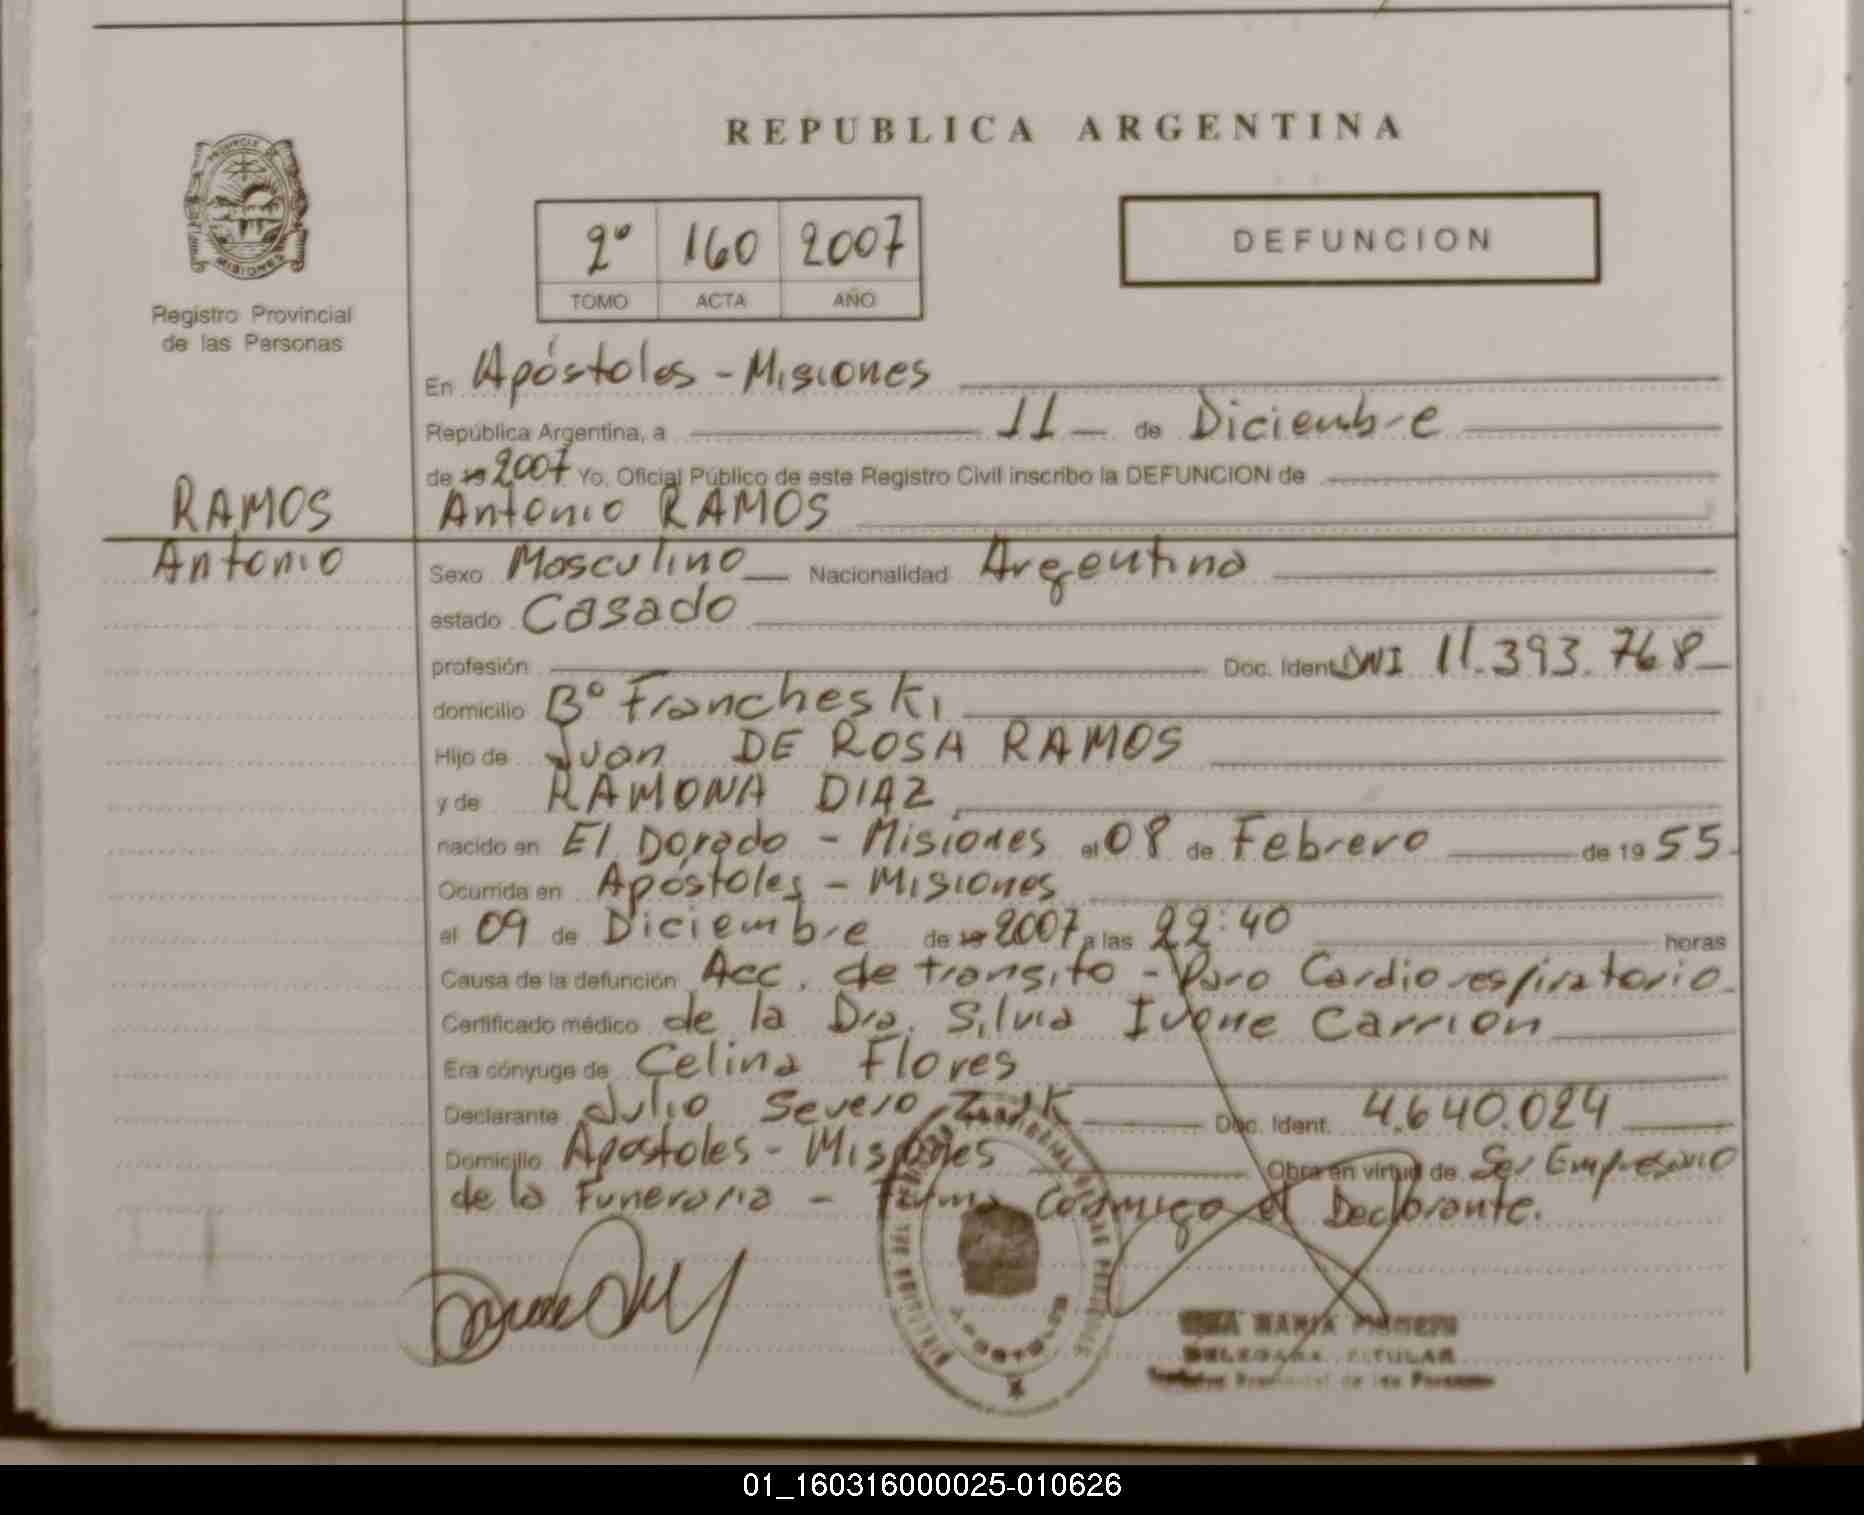 REPUBLICA ARGENTINA
PROVINCIA DE MISIONES
Registro Provincial
de las Personas
2º 160 2007
TOMO ACTA AÑO
DEFUNCION
En Apóstoles - Misiones
República Argentina, a 11 de Diciembre
de 19 2007 Yo, Oficial Público de este Registro Civil inscribo la DEFUNCION de
RAMOS
Antonio
Antonio RAMOS
Sexo Masculino Nacionalidad Argentina
estado Casado
profesión Doc. Ident. DNI 11.393.768
domicilio Bº Francheski
Hijo de Juan DE ROSA RAMOS
y de RAMONA DIAZ
nacido en El Dorado - Misiones el 08 de Febrero de 1955
Ocurrida en Apóstoles - Misiones
el 09 de Diciembre de 19 2007 a las 22:40 horas
Causa de la defunción Acc. de transito - Paro Cardiorespiratorio
Certificado médico de la Dra. Silvia Ivone Carrion
Era cónyuge de Celina Flores
Declarante Julio Severo Doc. Ident. 4.640.024
Domicilio Apostoles - Misiones Obra en virtud de Ser Empresario
de la Funeraria - Firma Conmigo el Declarante.
APOSTOLES
MARIA
DELEGADA TITULAR
Provincial de las Personas
01_160316000025-010626